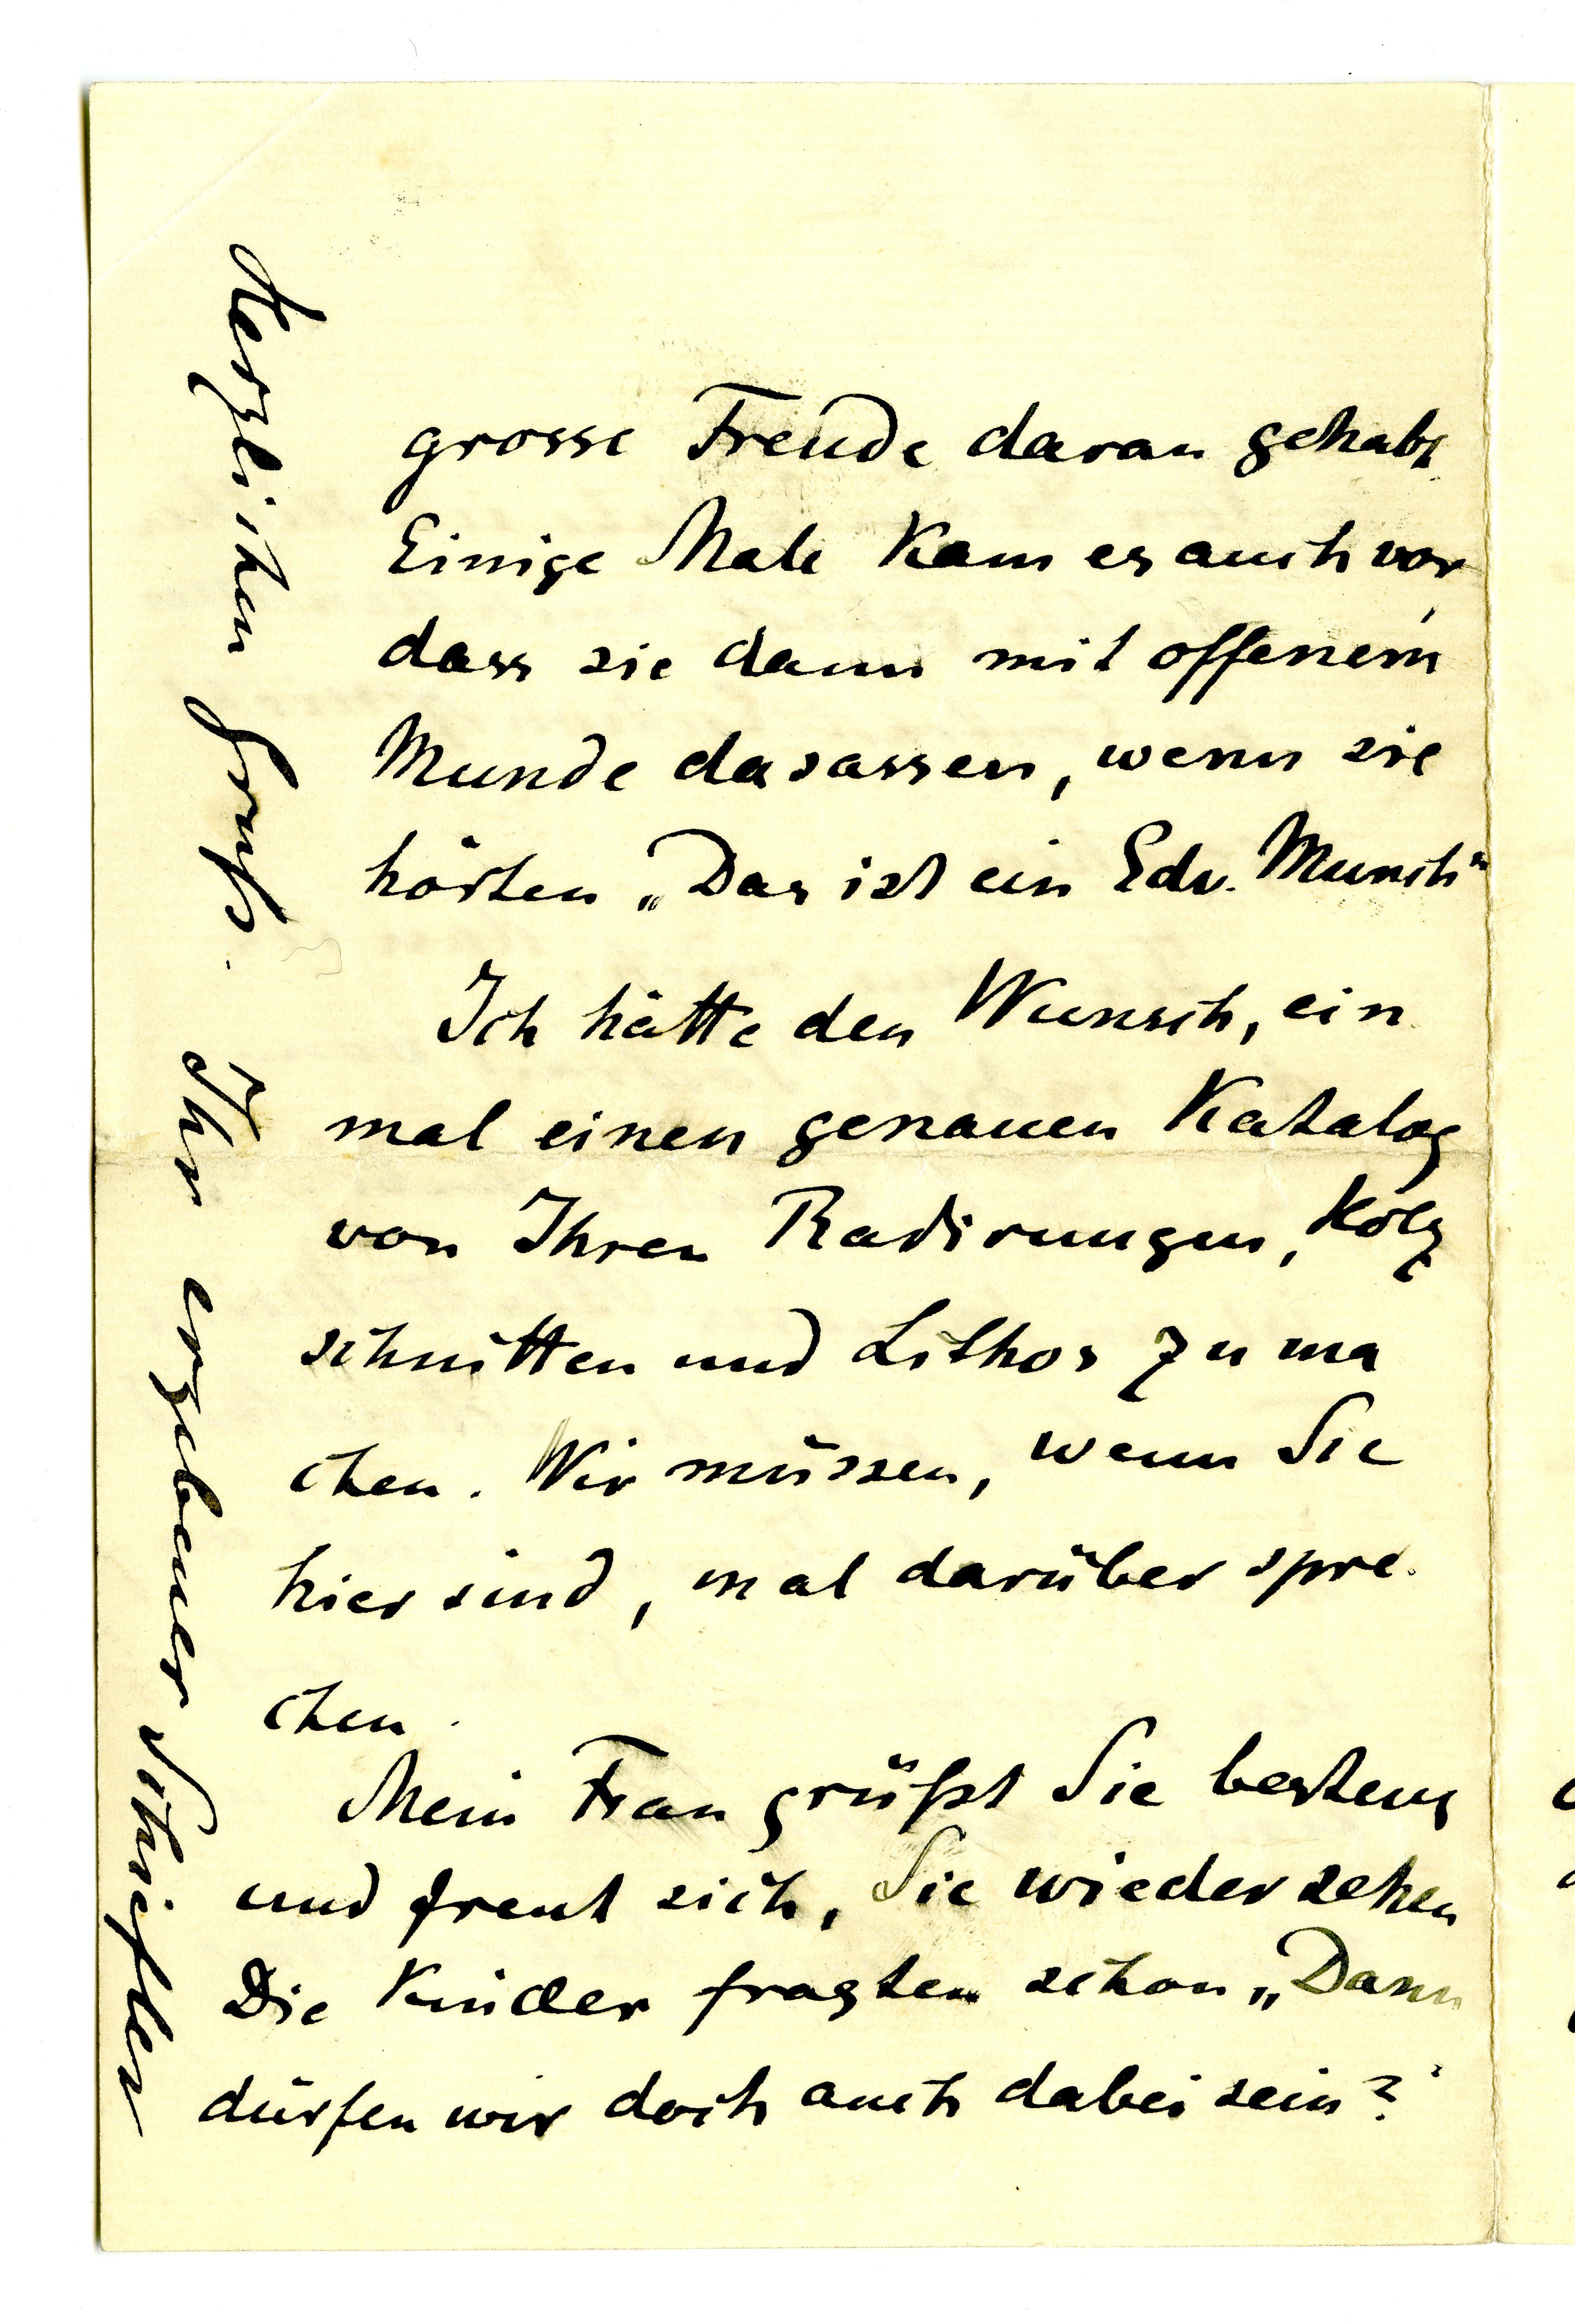 grosse Freude daran gehabt
Einige Male kam es auch vor
dass sie dann mit offenem
Munde dasassen, wenn sie
hörten „Das ist ein Edv. Munch"
Ich hätte den Wunsch, ein
mal einen genauen Katalog
von Ihren Radirungen, Holz
schnitten und Lithos zu ma
chen. Wir müssen, wenn Sie
hier sind, mal darüber spre
chen.
Mein Frau grüßt Sie bestens
und freut sich, Sie wiedersehen
Die Kinder fragten schon „Dann
dürfen wir doch auch dabei sein?"
Herzlichen Gruß. Ihr ergebener Schiefler